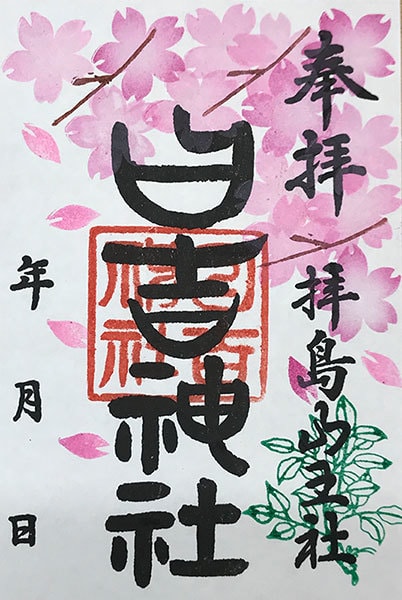 奉拝
拝島山王社
日吉神社
年 月 日